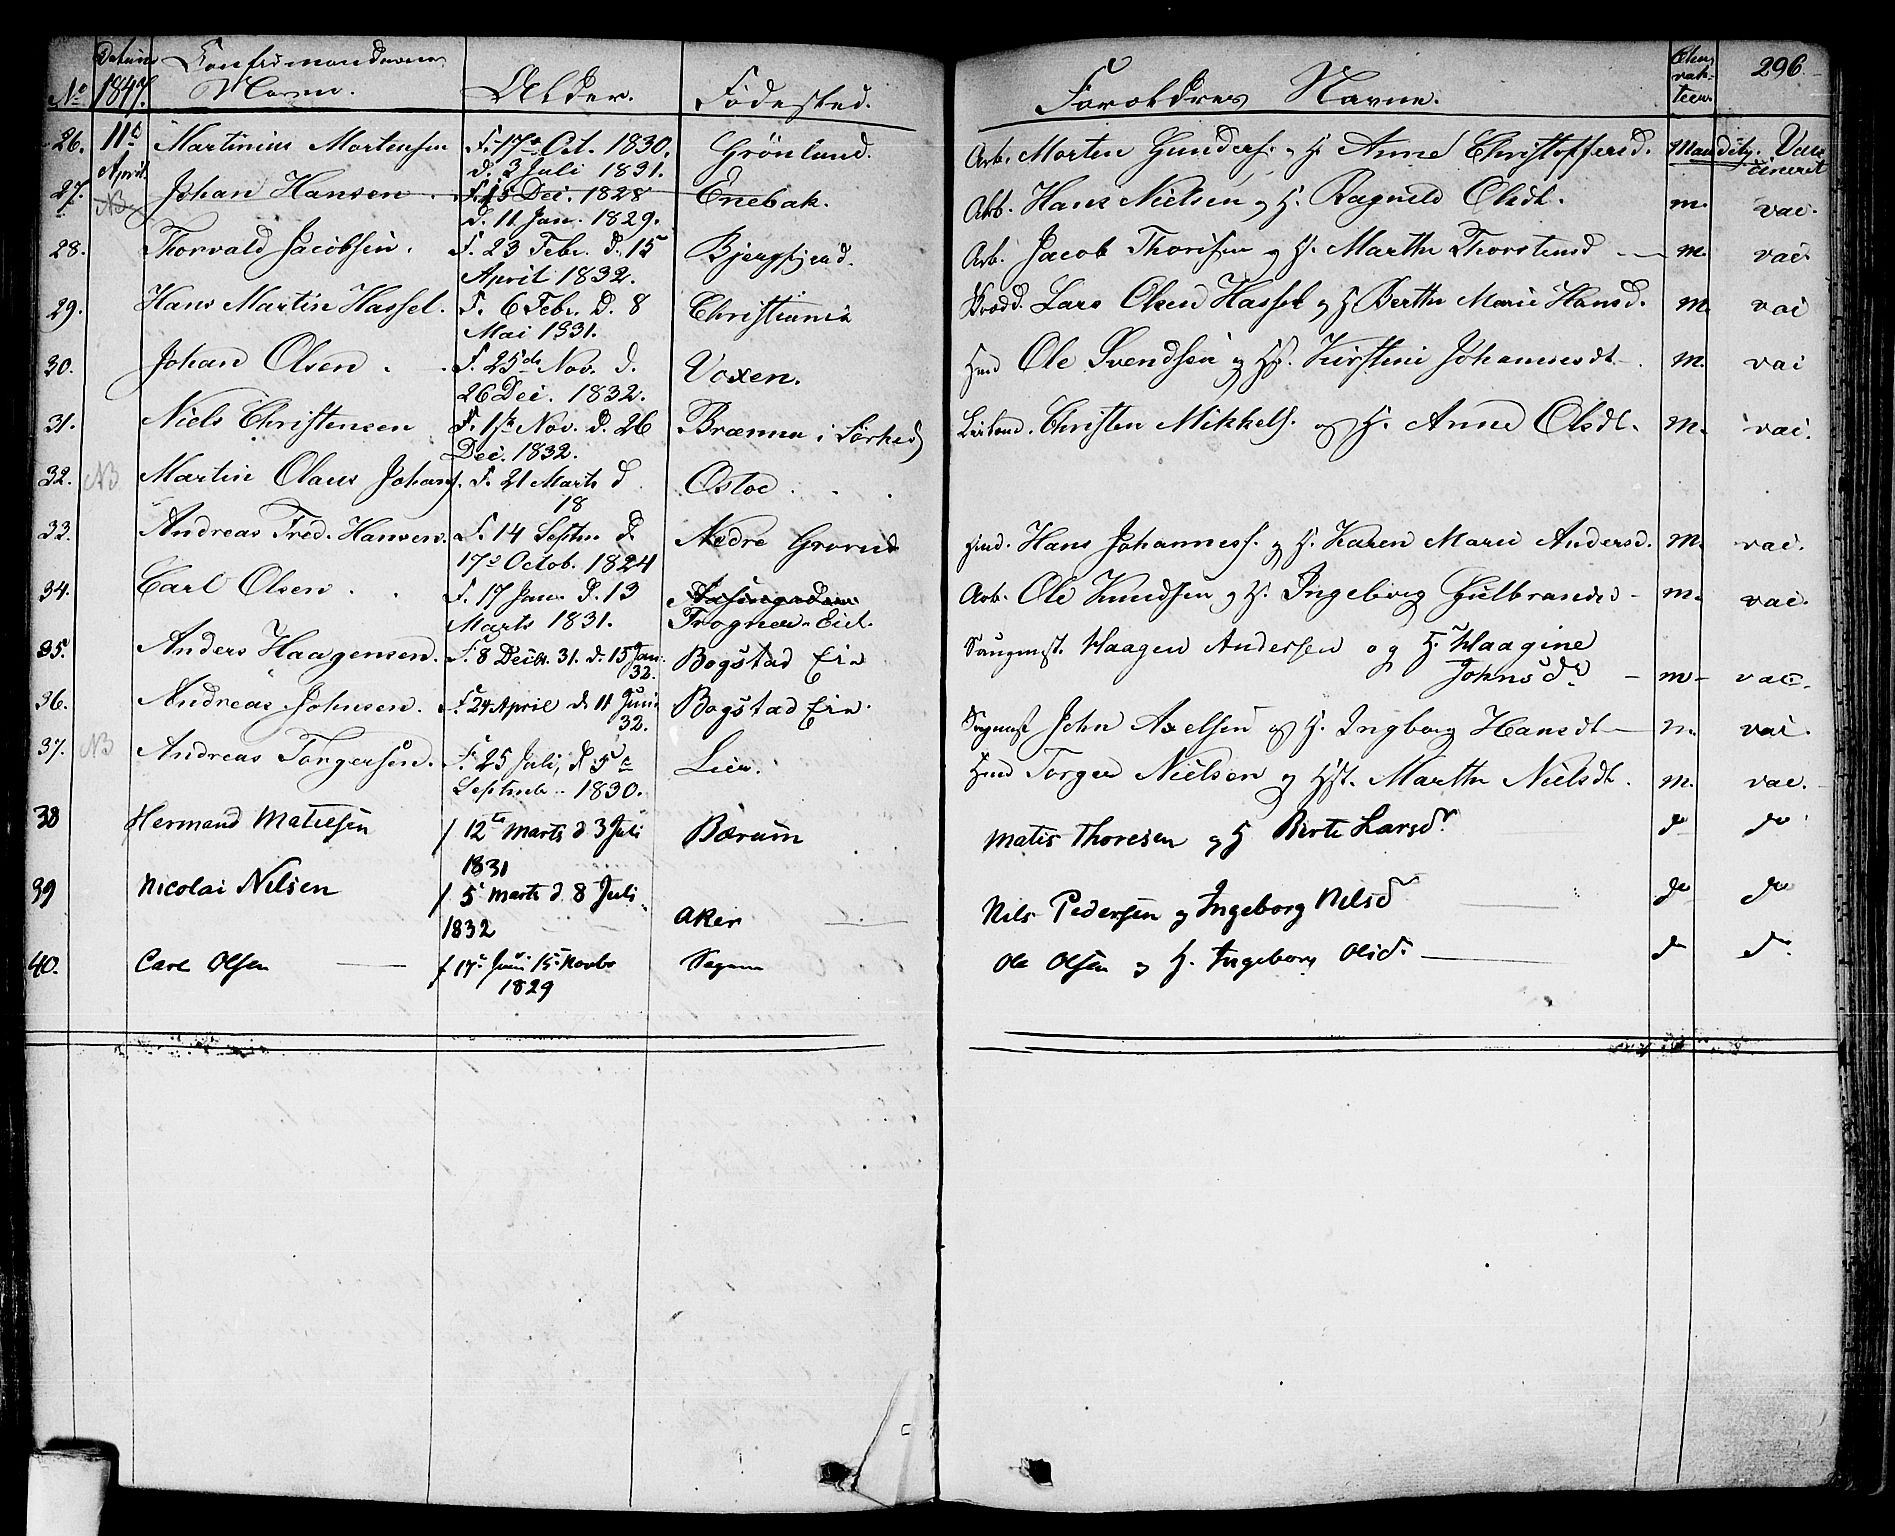 No Datum 1847. Confirmandernes Navne. Alder. Fødested. Forældres Navne. Charakteer. 296
26. 11te April Martinius Mortensen F. 17de Oct. 1830. Grönland. Arb. Morten Gunders. og H. Anne Christoffersd. Maadelig. Vaccineret
d. 3 Juli 1831.
27. NB Johan Hansen F. 15 Dec. 1828 Enebak. Arb. Hans Nielsen og H. Ragnild Olsdt. m. vac.
d. 11 Jan. 1829.
28. Thorvald Jacobsen. F. 23 Febr. d. 15 Arb. Jacob Thorsen og H. Marthe Thorstensd m. vac
April 1832.
29. Hans Martin Hassel. F. 6 Febr. d. 8 Christiania Lars Olsen Hassel og H. Berthe Marie Hansd. m. vac
Mai 1831.
30. Johan Olsen F. 25de Nov. d. Voxen. Hmd Ole Svendsen og H. Kirstine Johannesdt m. vac
26 Dec. 1832.
31. Niels Christensen F. 1ste Nov. d. 26 Brænna i Sörked Christen Mikkels. og H. Anne Olsdt. m. vac.
Dec. 1832.
32. NB Martin Olaus Johans. F. 21 Marts d Osloe
18
33. Andreas Fred. Hansen. F. 14 Septbr d. Nedre Grorud Hmd. Hans Johanness. og H. Karen Marie Andersd. m. vac.
17de Octob. 1824
34. Carl Olsen F. 17 Jan. d. 13 Arb. Ole Knudsen og H. Ingeborg Gulbrandsd m. vac.
Marts 1831. Frogner-Eiet.
35. Anders Haagensen. F. 8 Decbr. 31. d. 15 Jan. 32. Bogstad Eie Saugmst. Haagen Andersen og H. Haagine
Johnsdr m vac.
36. Andreas Johnsen. F. 24 April d 11 Juni 32. Bogstad Eie. Sagmst John Axelsen og H. Ingborg Hansdt m. vac.
37. NB Andreas Torgersen. F. 25 Juli, d. 5te Lier. Hmd Torger Nielsen og Hst. Marthe Nielsdt. m. vac.
Septmb. 1830.
38 Hermand Matiesen f 12te Marts d 3 Juli Bærum Matis Thoresen og H Berte Larsdr. do do
1831
39 Nicolai Nilsen f 5 Marts d. 8 Juli Aker Nils Pedersen og Ingeborg Nelsd do do
1832
40. Carl Olsen f 17de Juni 15 Novbr Ole Olsen og H. Ingeborg Olsd. do do
1829